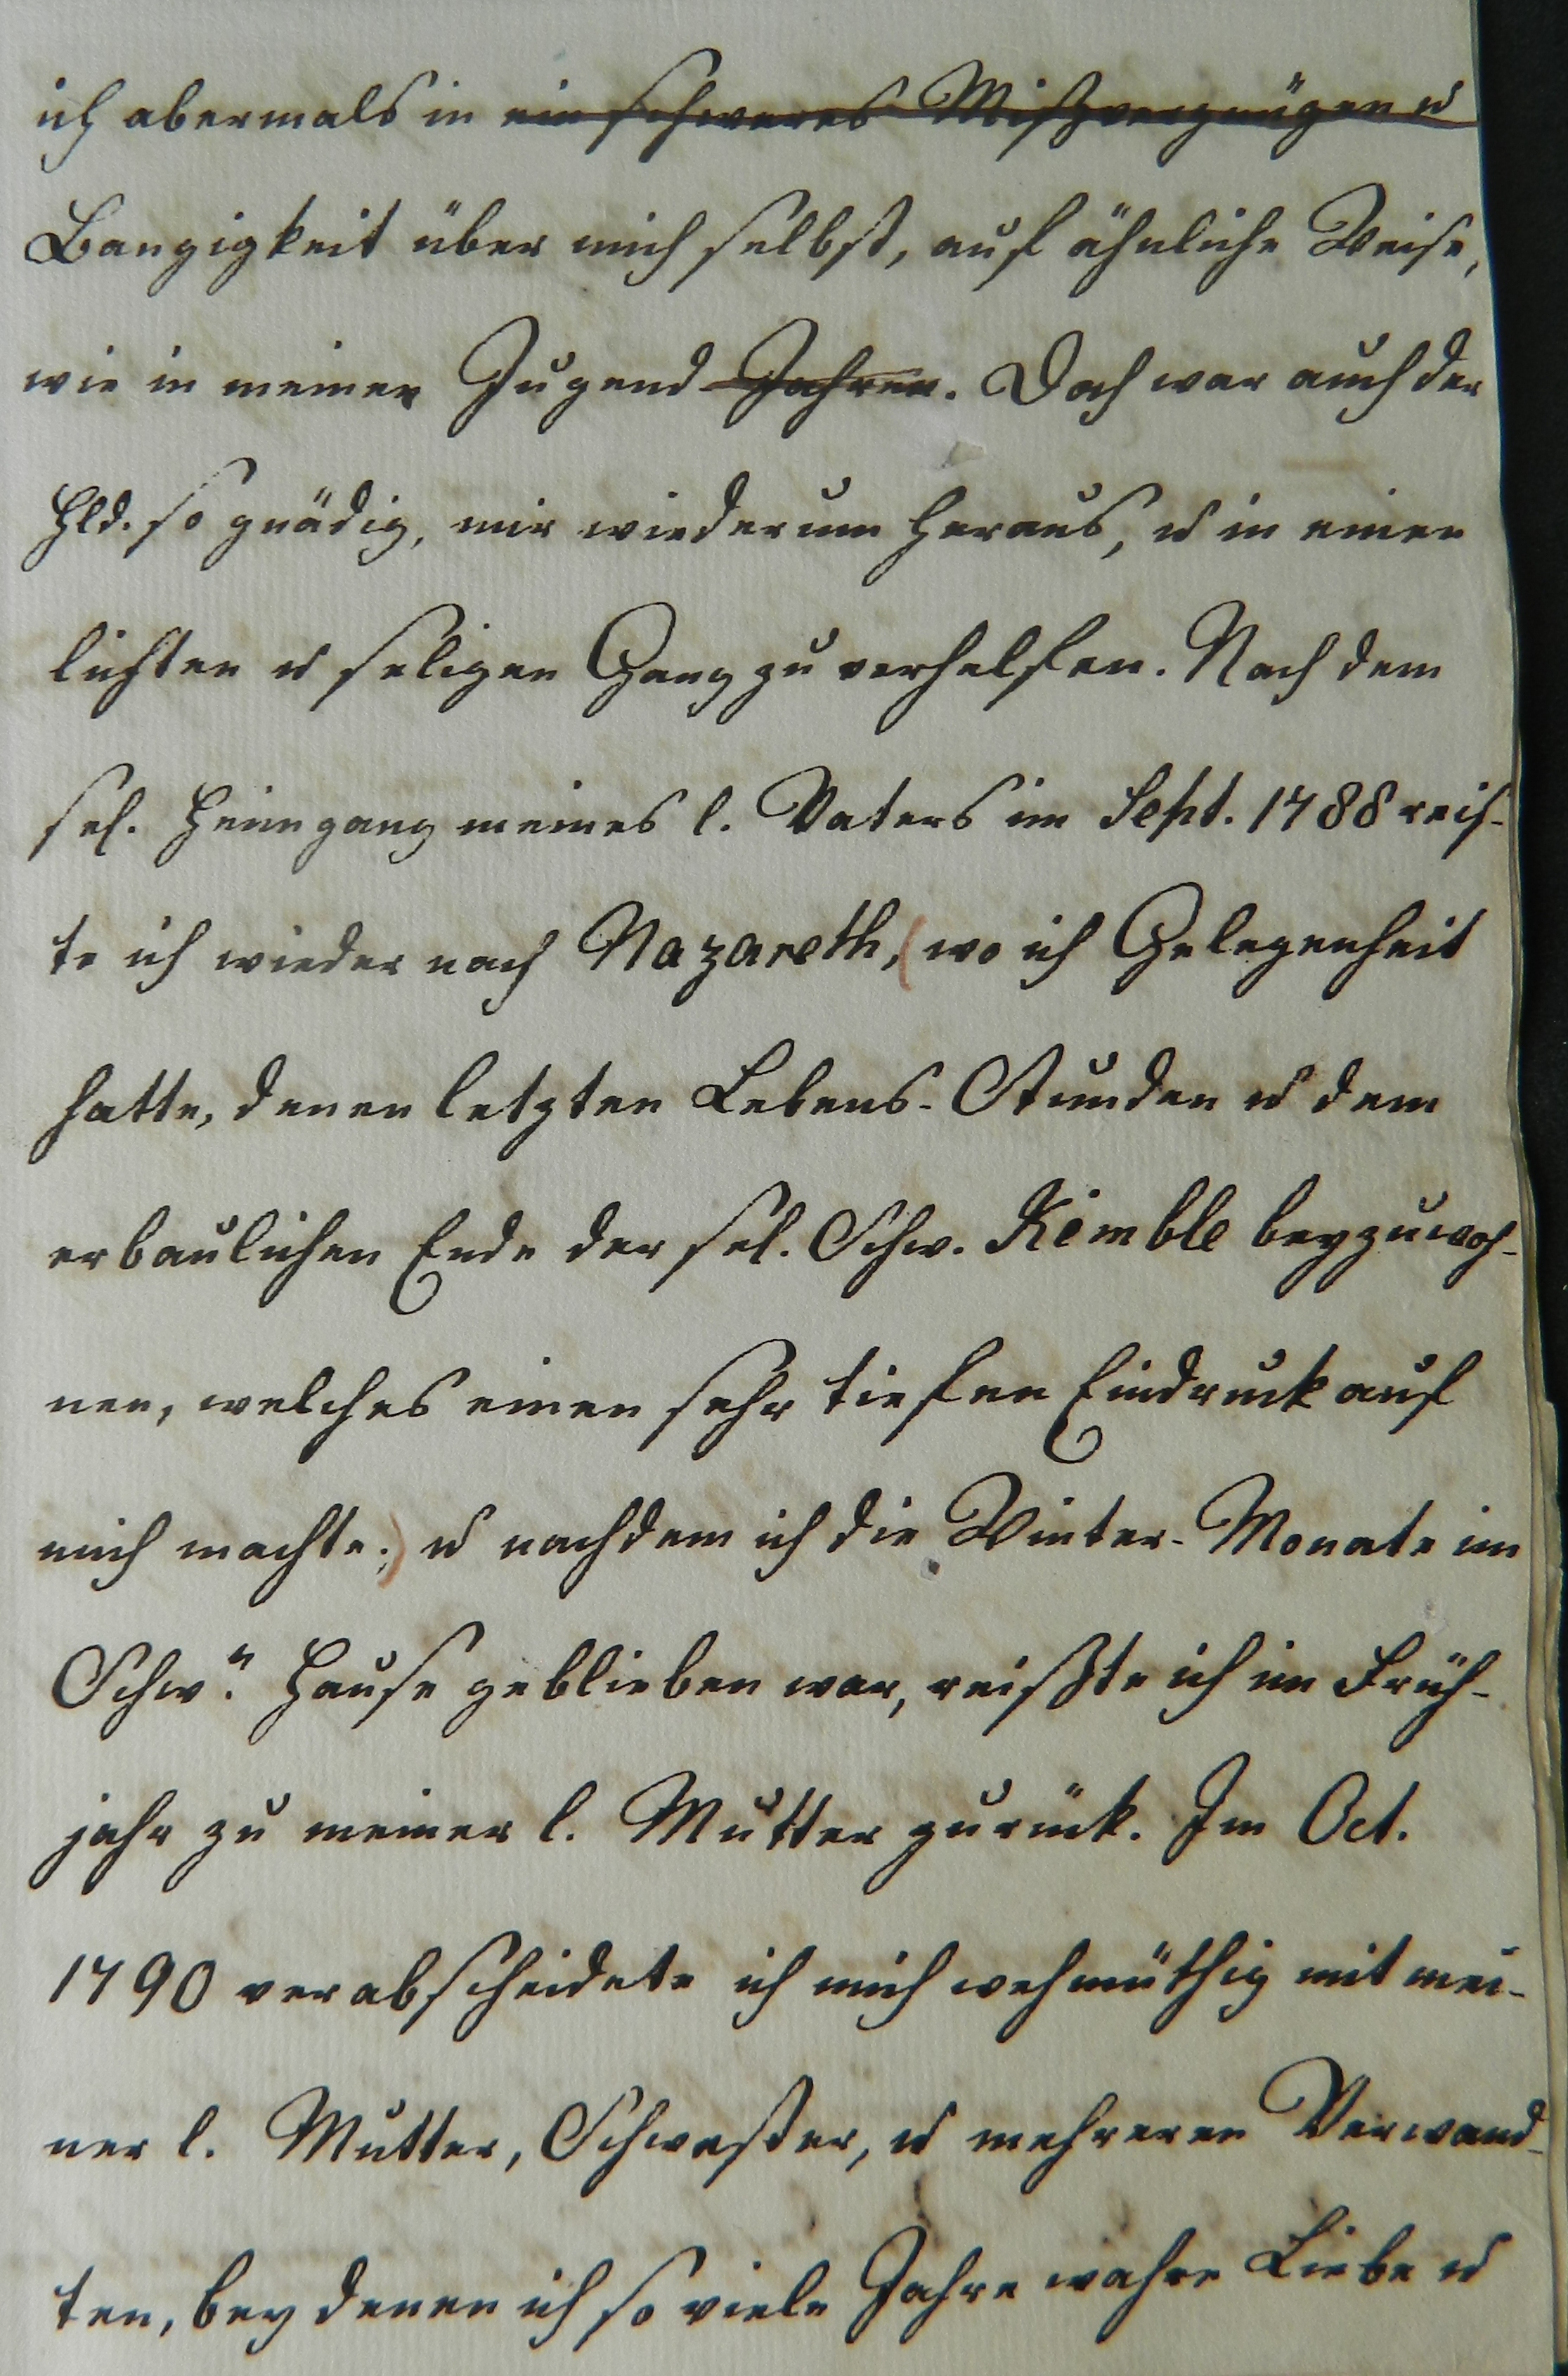 ich abermals in ein schweres Mißvergnügen u
Bangigkeit über mich selbst, auf ähnliche Weise,
wie in meiner Jugend-Jahren. Doch war auch der
Hld. so gnädig, mir wiederum heraus, u in einen
lichten u seligen Gang zu verhelfen. Nach dem
sel. Heimgang meines l. Vaters im Sept. 1788 reis-
te ich wieder nach Nazareth, (wo ich Gelegenheit
hatte, denen letzten Lebens-Stunden u dem
erbaulichen Ende der sel. Schw. Kimble beyzuwoh-
nen, welches einen sehr tiefen Eindruck auf
mich machte;) u nachdem ich die Winter-Monate im
Schwn. Hause geblieben war, reißte ich im Früh-
jahr zu meiner l. Mutter zurück. Im Oct.
1790 verabscheidete ich mich wehmüthig mit mei-
ner l. Mutter, Schwester, u mehreren Verwand-
ten, bey denen ich so viele Jahre wahre Liebe u